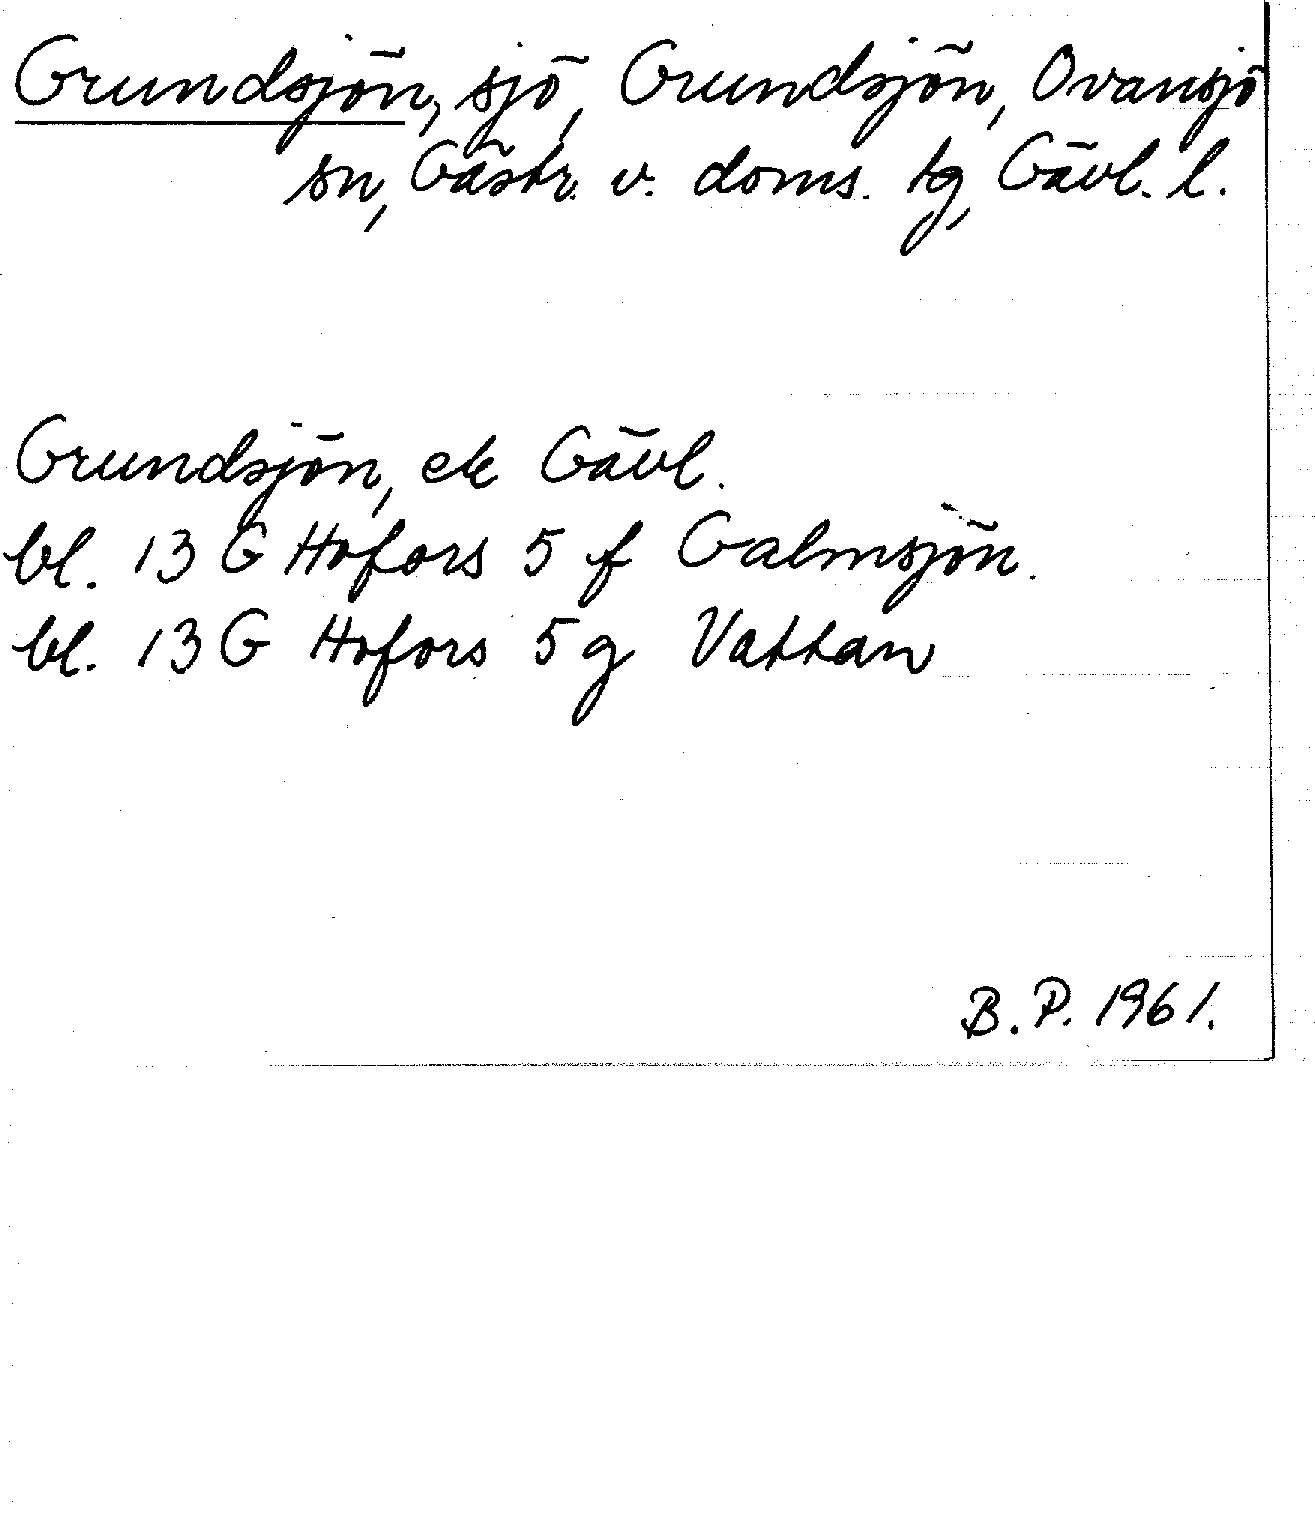 Grundsjön, sjö, Grundsjön, Ovansjö
sn, Gästr. v. doms. tg, Gävl. l.
Grundsjön, ek Gävl.
bl. 13 G Hofors 5 f Galmsjön.
bl. 13 G Hofors 5 g Vattan
B. P. 1961.